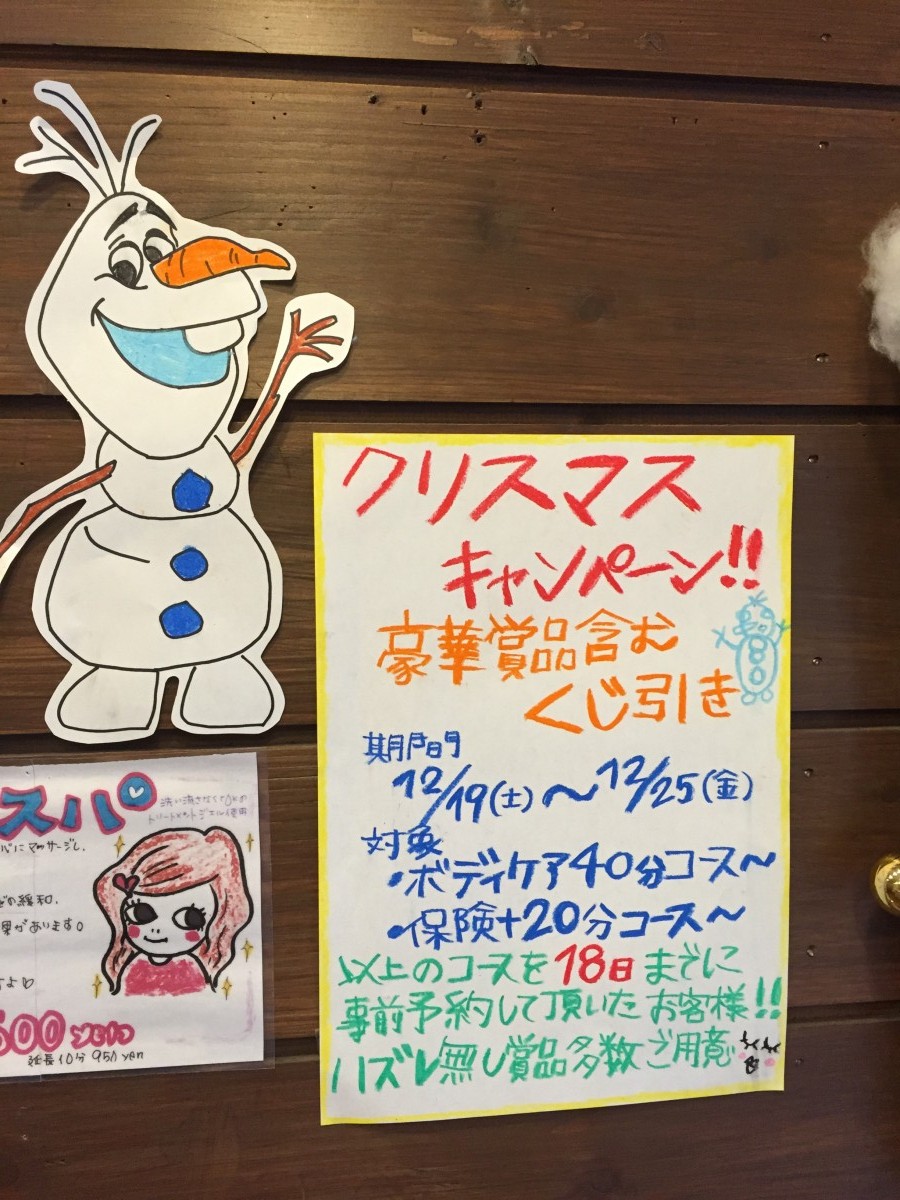 クリスマス
キャンペーン!!
豪華賞品含む
くじ引き
期間
12/19(土)〜12/25(金)
対象
・ボディケア40分コース〜
・保険+20分コース〜
以上のコースを18日までに
事前予約して頂いたお客様!!
ハズレ無し賞品多数ご用意
スパ
洗い流さなくてOKの
トリートメントジェル使用
にマッサージし、
の緩和、
果があります。
よ♡
500
延長10分 950 yen